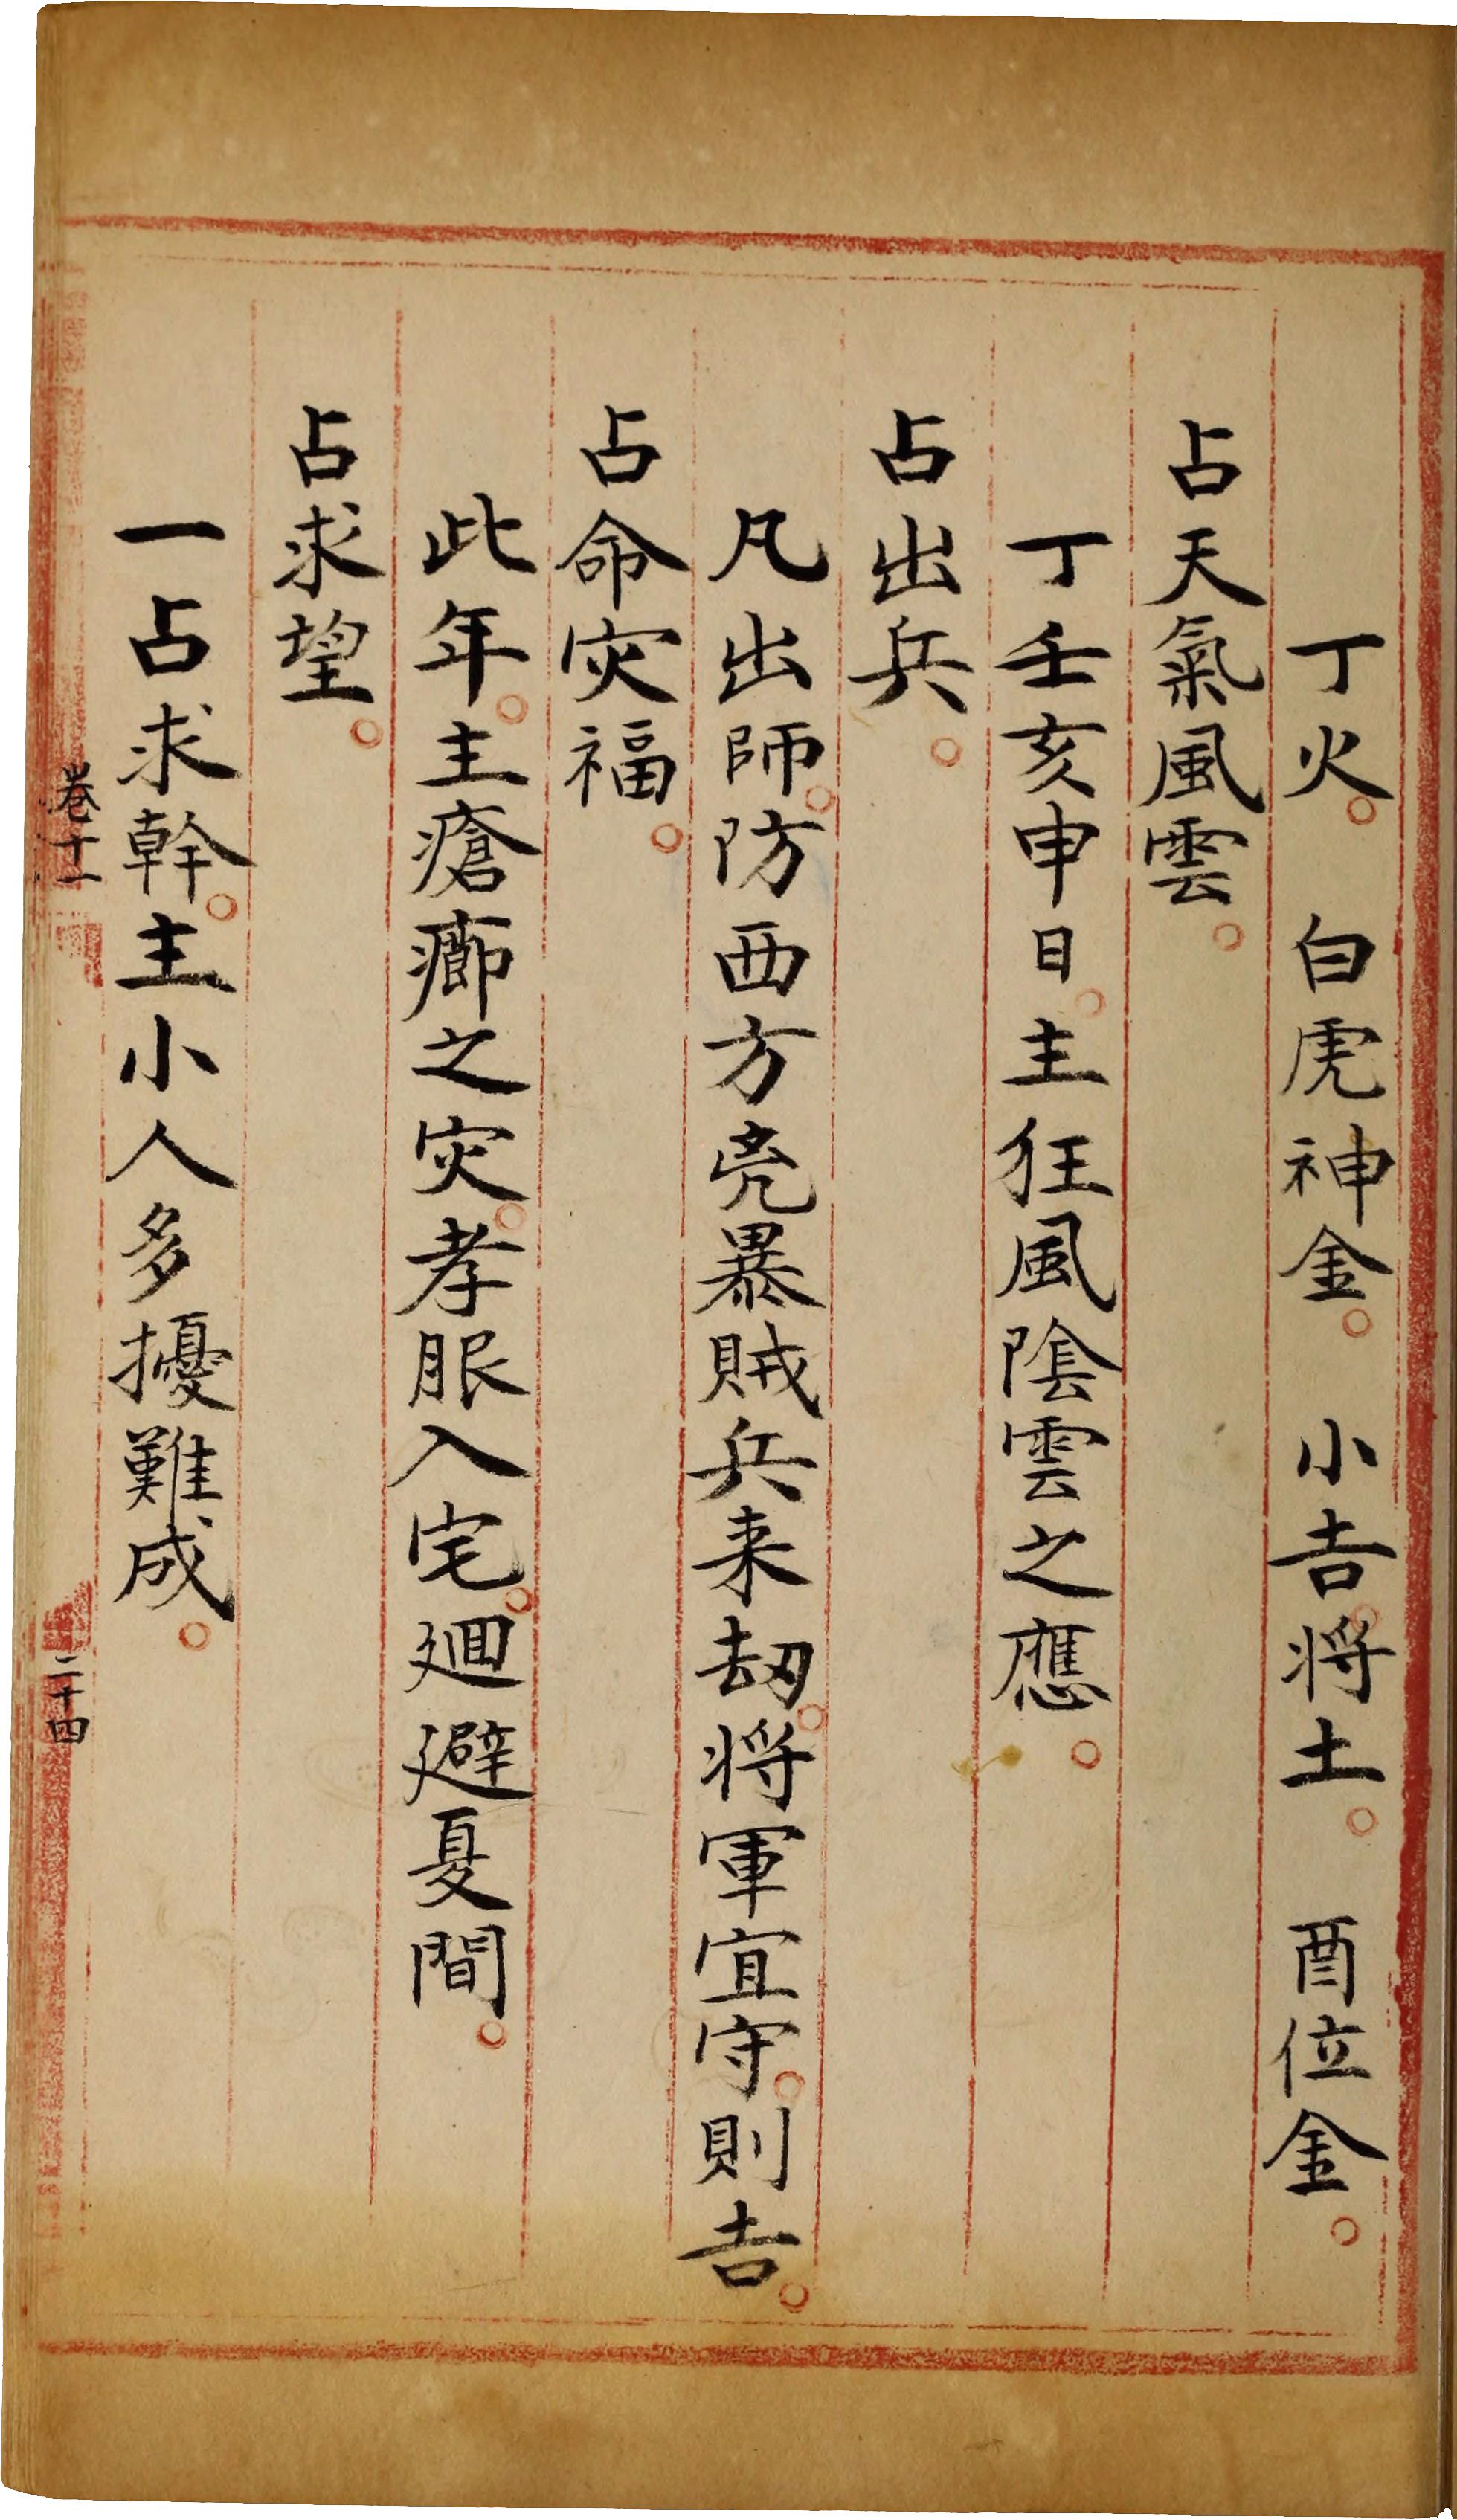 丁火。白虎神金。小吉。将土。酉位金。
占天氣風雲。
丁壬亥申日。主狂風陰雲之應。
占出兵。
凡出師。防西方兇暴賊兵来刼。将軍宜守。則吉。
占命灾福。
此年。主瘡癤之灾。孝服入宅。廻避夏間。
占求望。
一占求幹。主小人多擾難成。
卷十一
二十四